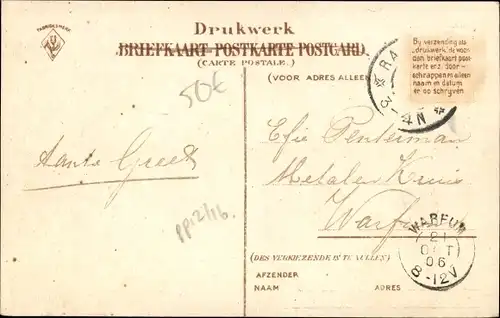 FABRIEKSMERK
Drukwerk
BRIEFKAART-POSTKARTE-POSTCARD.
(CARTE POSTALE.)
(VOOR ADRES ALLEEN
Bij verzending als
„drukwerk” de woor-
den briefkaart post-
karte enz. door-
schrappen en alleen
naam en datum
er op schrijven
RA
3-4N
50€
Tante Greet
pp12/16.
Efie Penterman
Metalen Kruis
Warfum
WARFUM
21
OCT
06
8-12V
(DES VERKIEZENDE IN TE VULLEN)
AFZENDER
NAAM
ADRES